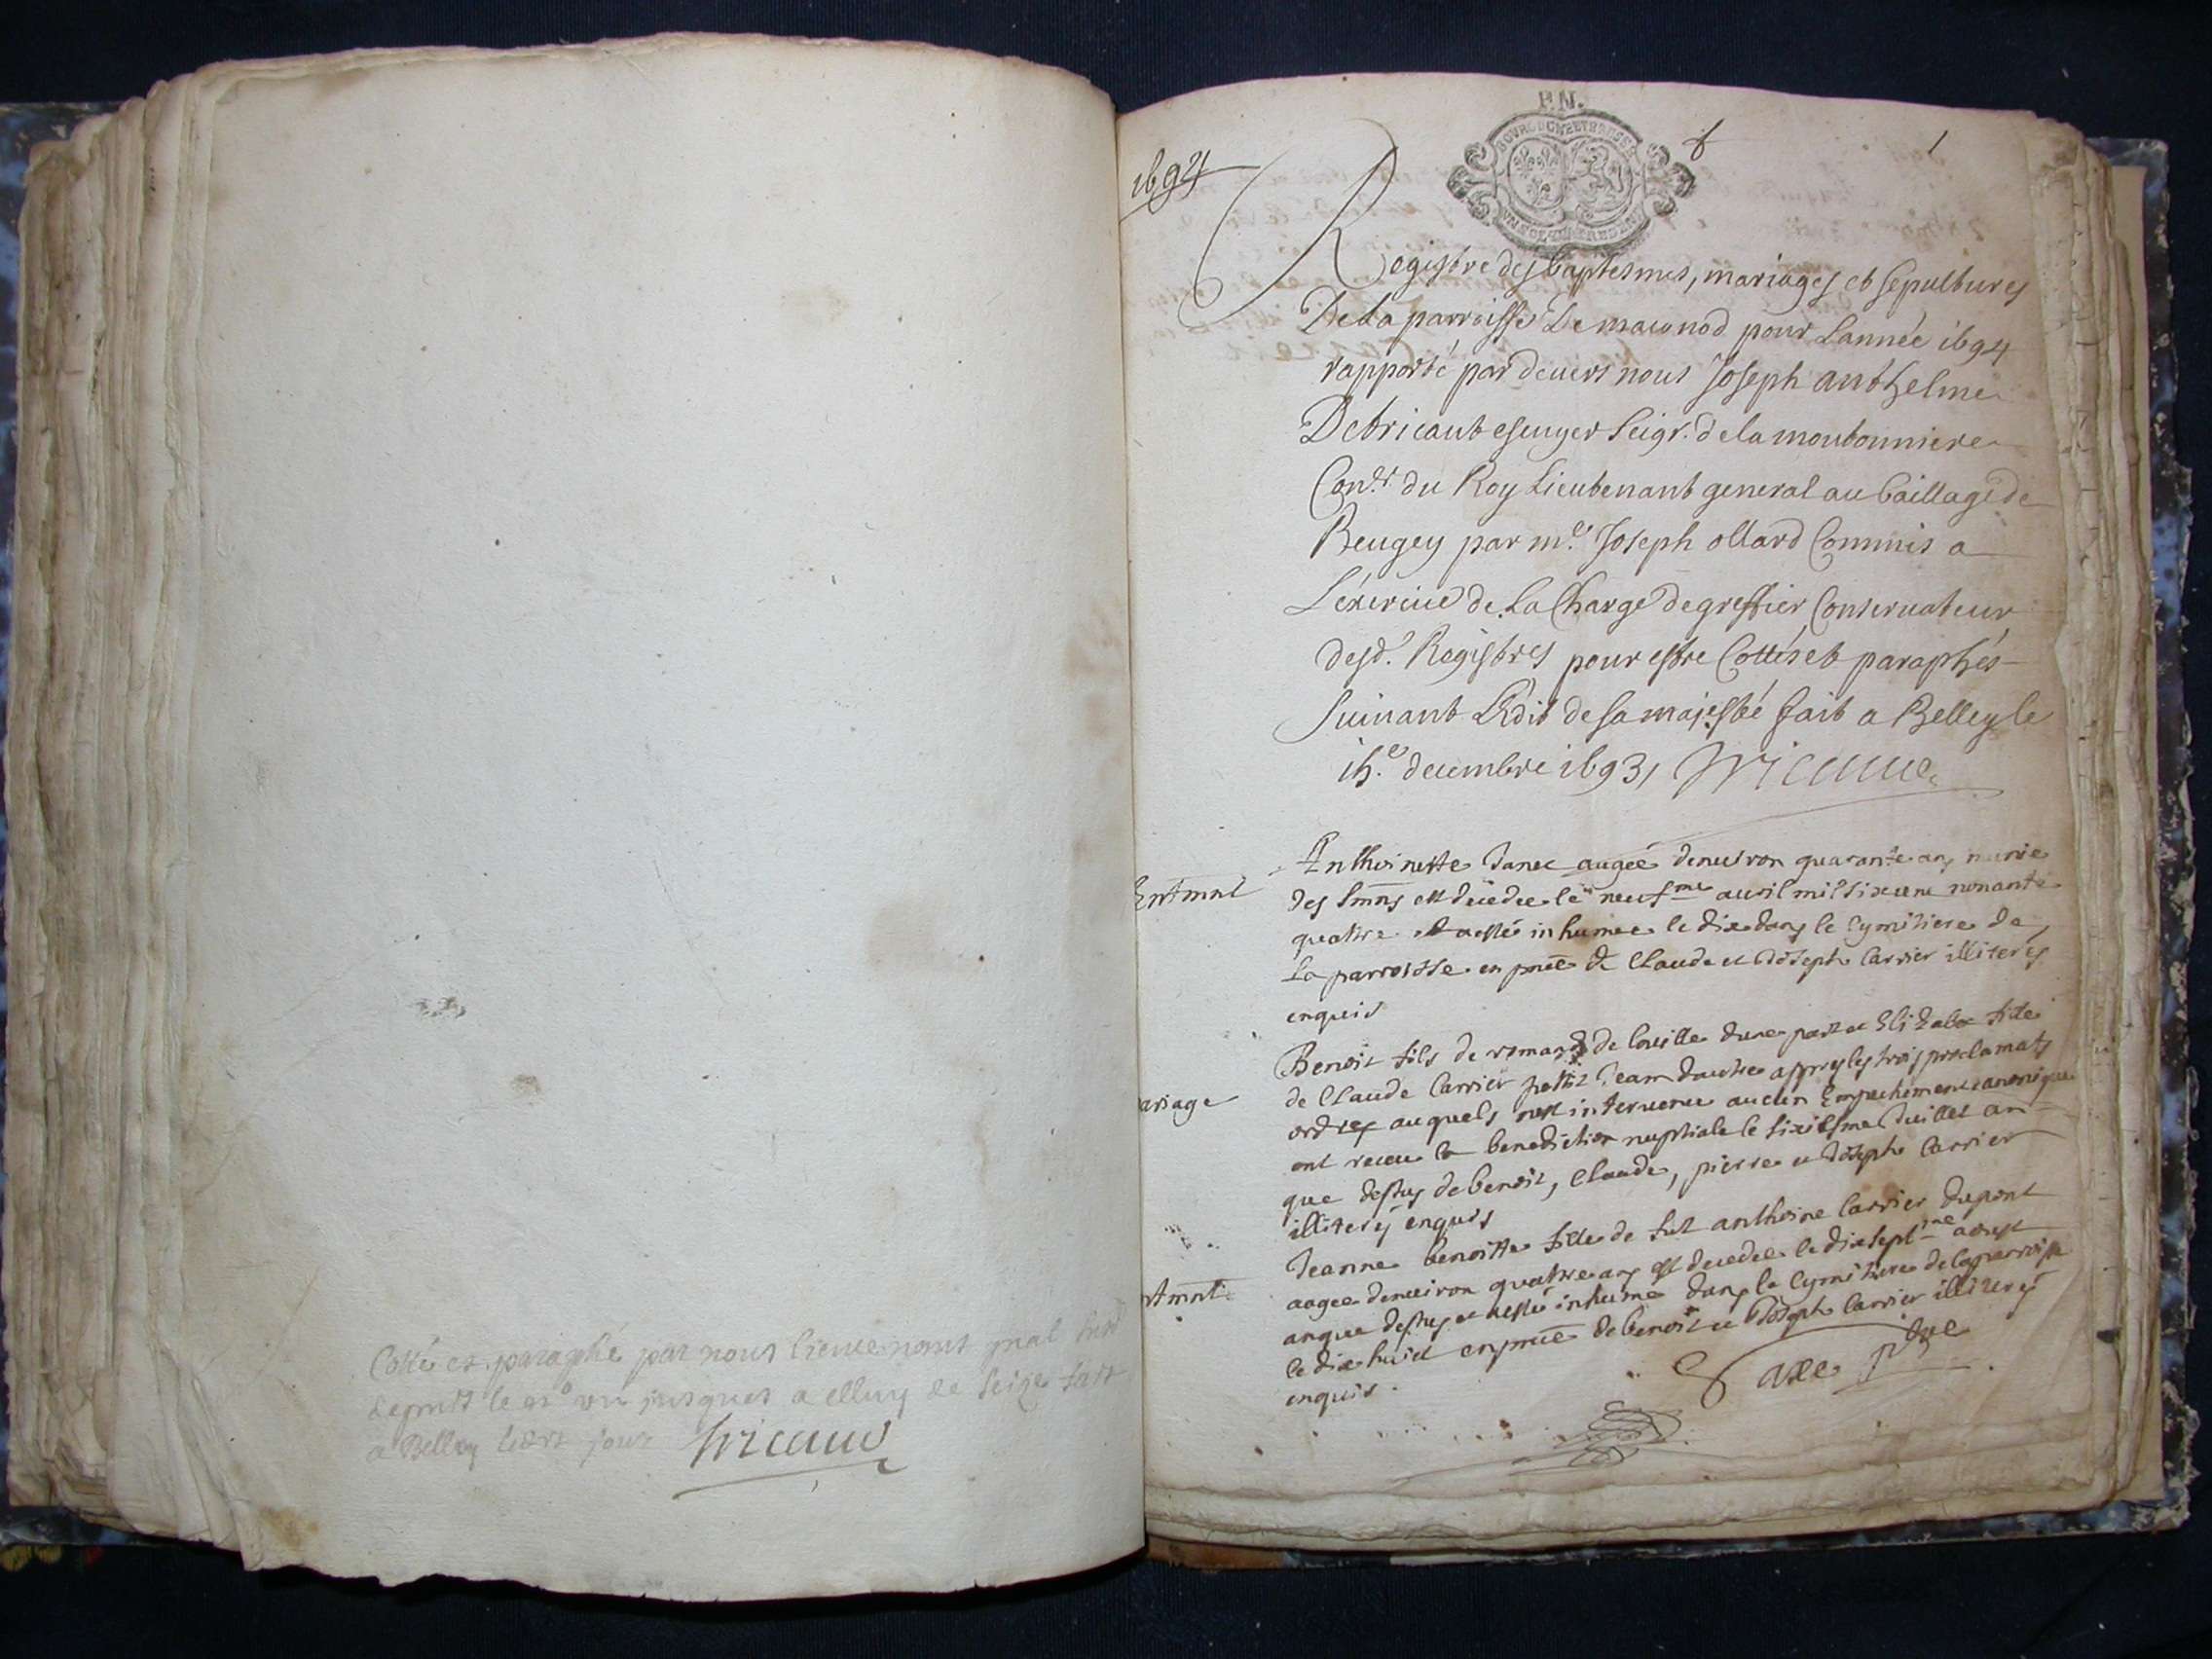 Cotté et paraphé par nous lieutenant gnal
depuis le jusques a celluy de seize fait
a Belley jour Tricaud
1694
P.N.
1
Registre des baptesmes, mariages et sepultures
De la parroisse De marignod pour Lannée 1694
rapporté par devers nous Joseph anthelme
De tricaut escuyer seigr. de la moutonniere
Conr. du Roy Lieutenant general au bailliage de
Beugey par me. Joseph ollard Commis a
L'exercice de La Charge de greffier Conservateur
desd. Registres pour estre Cottés et paraphés
suivant L'edit de sa majesté fait a Belley le
15e. decembre 1693, Tricaud
Entmnt
Anthoinette Janec aagée denviron quarante ans munie
des smns est decedee le neufme avril mil six cent nonante
quattre et a esté inhumee le dix dans le cymitiere de
la parroisse en pnce de Claude et Joseph Carrier illiterés
enquis
ariage
Benoit fils de romand de lonille dune part et Elizabet fille
de Claude Carrier petit Jean dautre appres les trois proclamats
ordres auquels nest intervenue aucun Empechement canonique
ont receu la benediction nuptiale le sixiesme Juillet an
que dessus de benoit, Claude, pierre et Joseph Carrier
illiterés enquis
ntmnt
Jeanne benoitte fille de fut anthoine Carrier dupont
aagee denviron quattre ans est decedee le dix septme aoust
anque dessus et a esté inhumé dans le cymitiere de la parroisse
le dix huict en pnce de benoit et Joseph Carrier illiterés
enquis. ptre